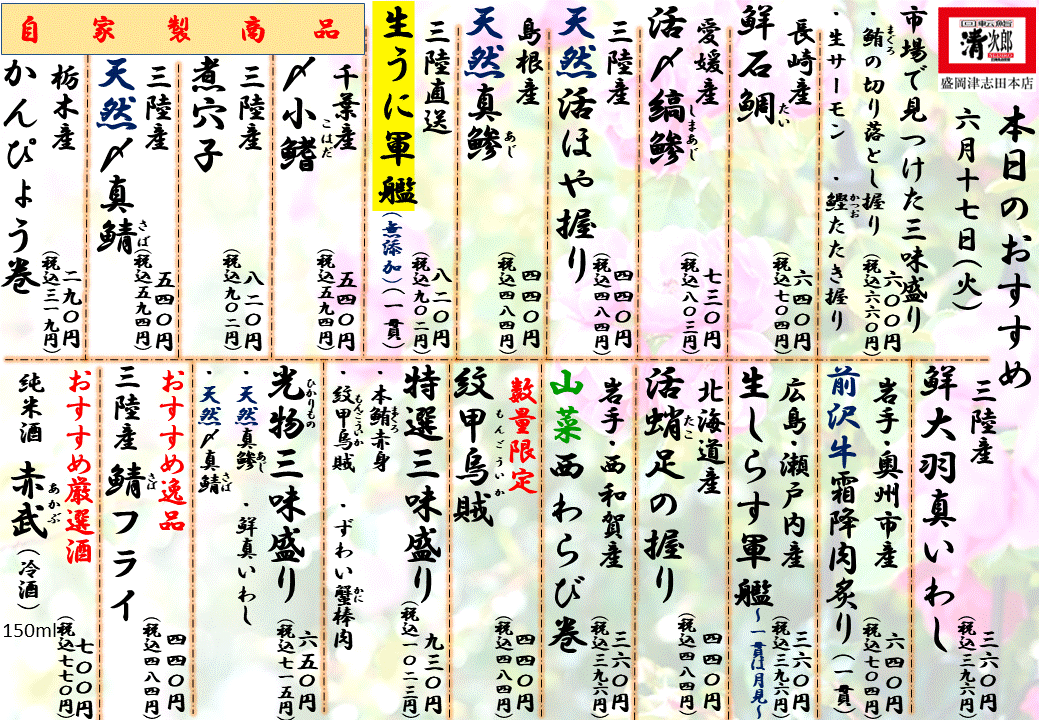 回転鮨
清次郎
盛岡津志田本店
本日のおすすめ
六月十七日(火)
市場で見つけた三味盛り
・鮪の切り落とし握り
まぐろ
六〇〇円
(税込六六〇円)
・生サーモン ・鰹たたき握り
かつお
長崎産
鮮石鯛
たい
六四〇円
(税込七〇四円)
愛媛産
活〆縞鯵
しまあじ
七三〇円
(税込八〇三円)
三陸産
天然活ほや握り
四四〇円
(税込四八四円)
島根産
天然真鯵
あじ
四四〇円
(税込四八四円)
三陸直送
生うに軍艦
(無添加)(一貫)
八二〇円
(税込九〇二円)
自家製商品
千葉産
〆小鰭
こはだ
五四〇円
(税込五九四円)
三陸産
煮穴子
八二〇円
(税込九〇二円)
三陸産
天然〆真鯖
さば
五四〇円
(税込五九四円)
栃木産
かんぴょう巻
二九〇円
(税込三一九円)
三陸産
鮮大羽真いわし
三六〇円
(税込三九六円)
岩手・奥州市産
前沢牛霜降肉炙り(一貫)
六四〇円
(税込七〇四円)
広島・瀬戸内産
生しらす軍艦
~一貫は月見~
三六〇円
(税込三九六円)
北海道産
活蛸足の握り
たこ
四四〇円
(税込四八四円)
岩手・西和賀産
山菜西わらび巻
三六〇円
(税込三九六円)
数量限定
紋甲烏賊
もんごういか
四四〇円
(税込四八四円)
特選三味盛り
九三〇円
(税込一〇二三円)
・本鮪赤身
まぐろ
・紋甲烏賊 ・ずわい蟹棒肉
もんごういか
かに
光物三味盛り
ひかりもの
六五〇円
(税込七一五円)
・天然真鯵 ・鮮真いわし
あじ
・天然〆真鯖
さば
おすすめ逸品
三陸産 鯖フライ
さば
四四〇円
(税込四八四円)
おすすめ厳選酒
純米酒 赤武(冷酒)
あかぶ
150ml
七〇〇円
(税込七七〇円)